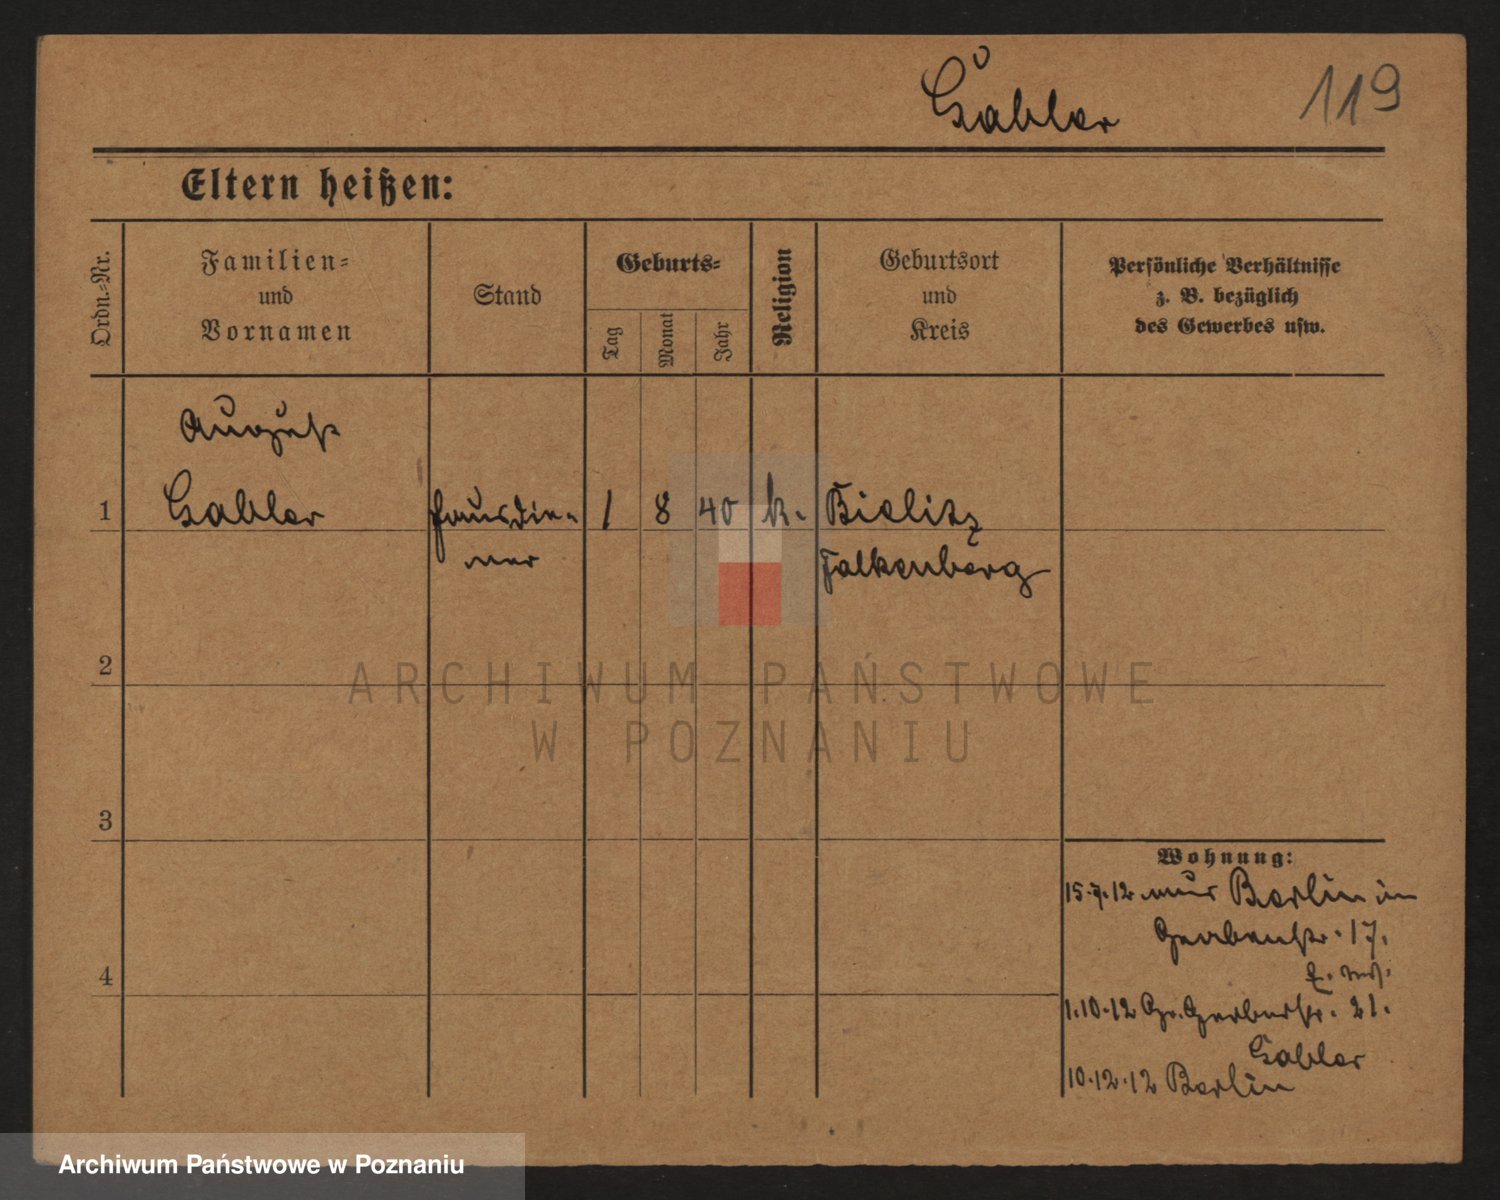 Gabler
119
Eltern heißen:
Ordn.-Nr.
Familien-
und
Vornamen
Stand
Geburts-
Tag
Monat
Jahr
Religion
Geburtsort
und
Kreis
Persönliche Verhältnisse
z. B. bezüglich
des Gewerbes usw.
August
1 Gabler Hausdie- 1 8 40 k. Bielitz
ner Falkenberg
2
ARCHIWUM PAŃSTWOWE
W POZNANIU
3
Wohnung:
15.7.12 aus Berlin in
Gerberstr. 17.
4
1.10.12 Gr. Gerberstr. 21.
Gabler
10.12.12 Berlin
Archiwum Państwowe w Poznaniu